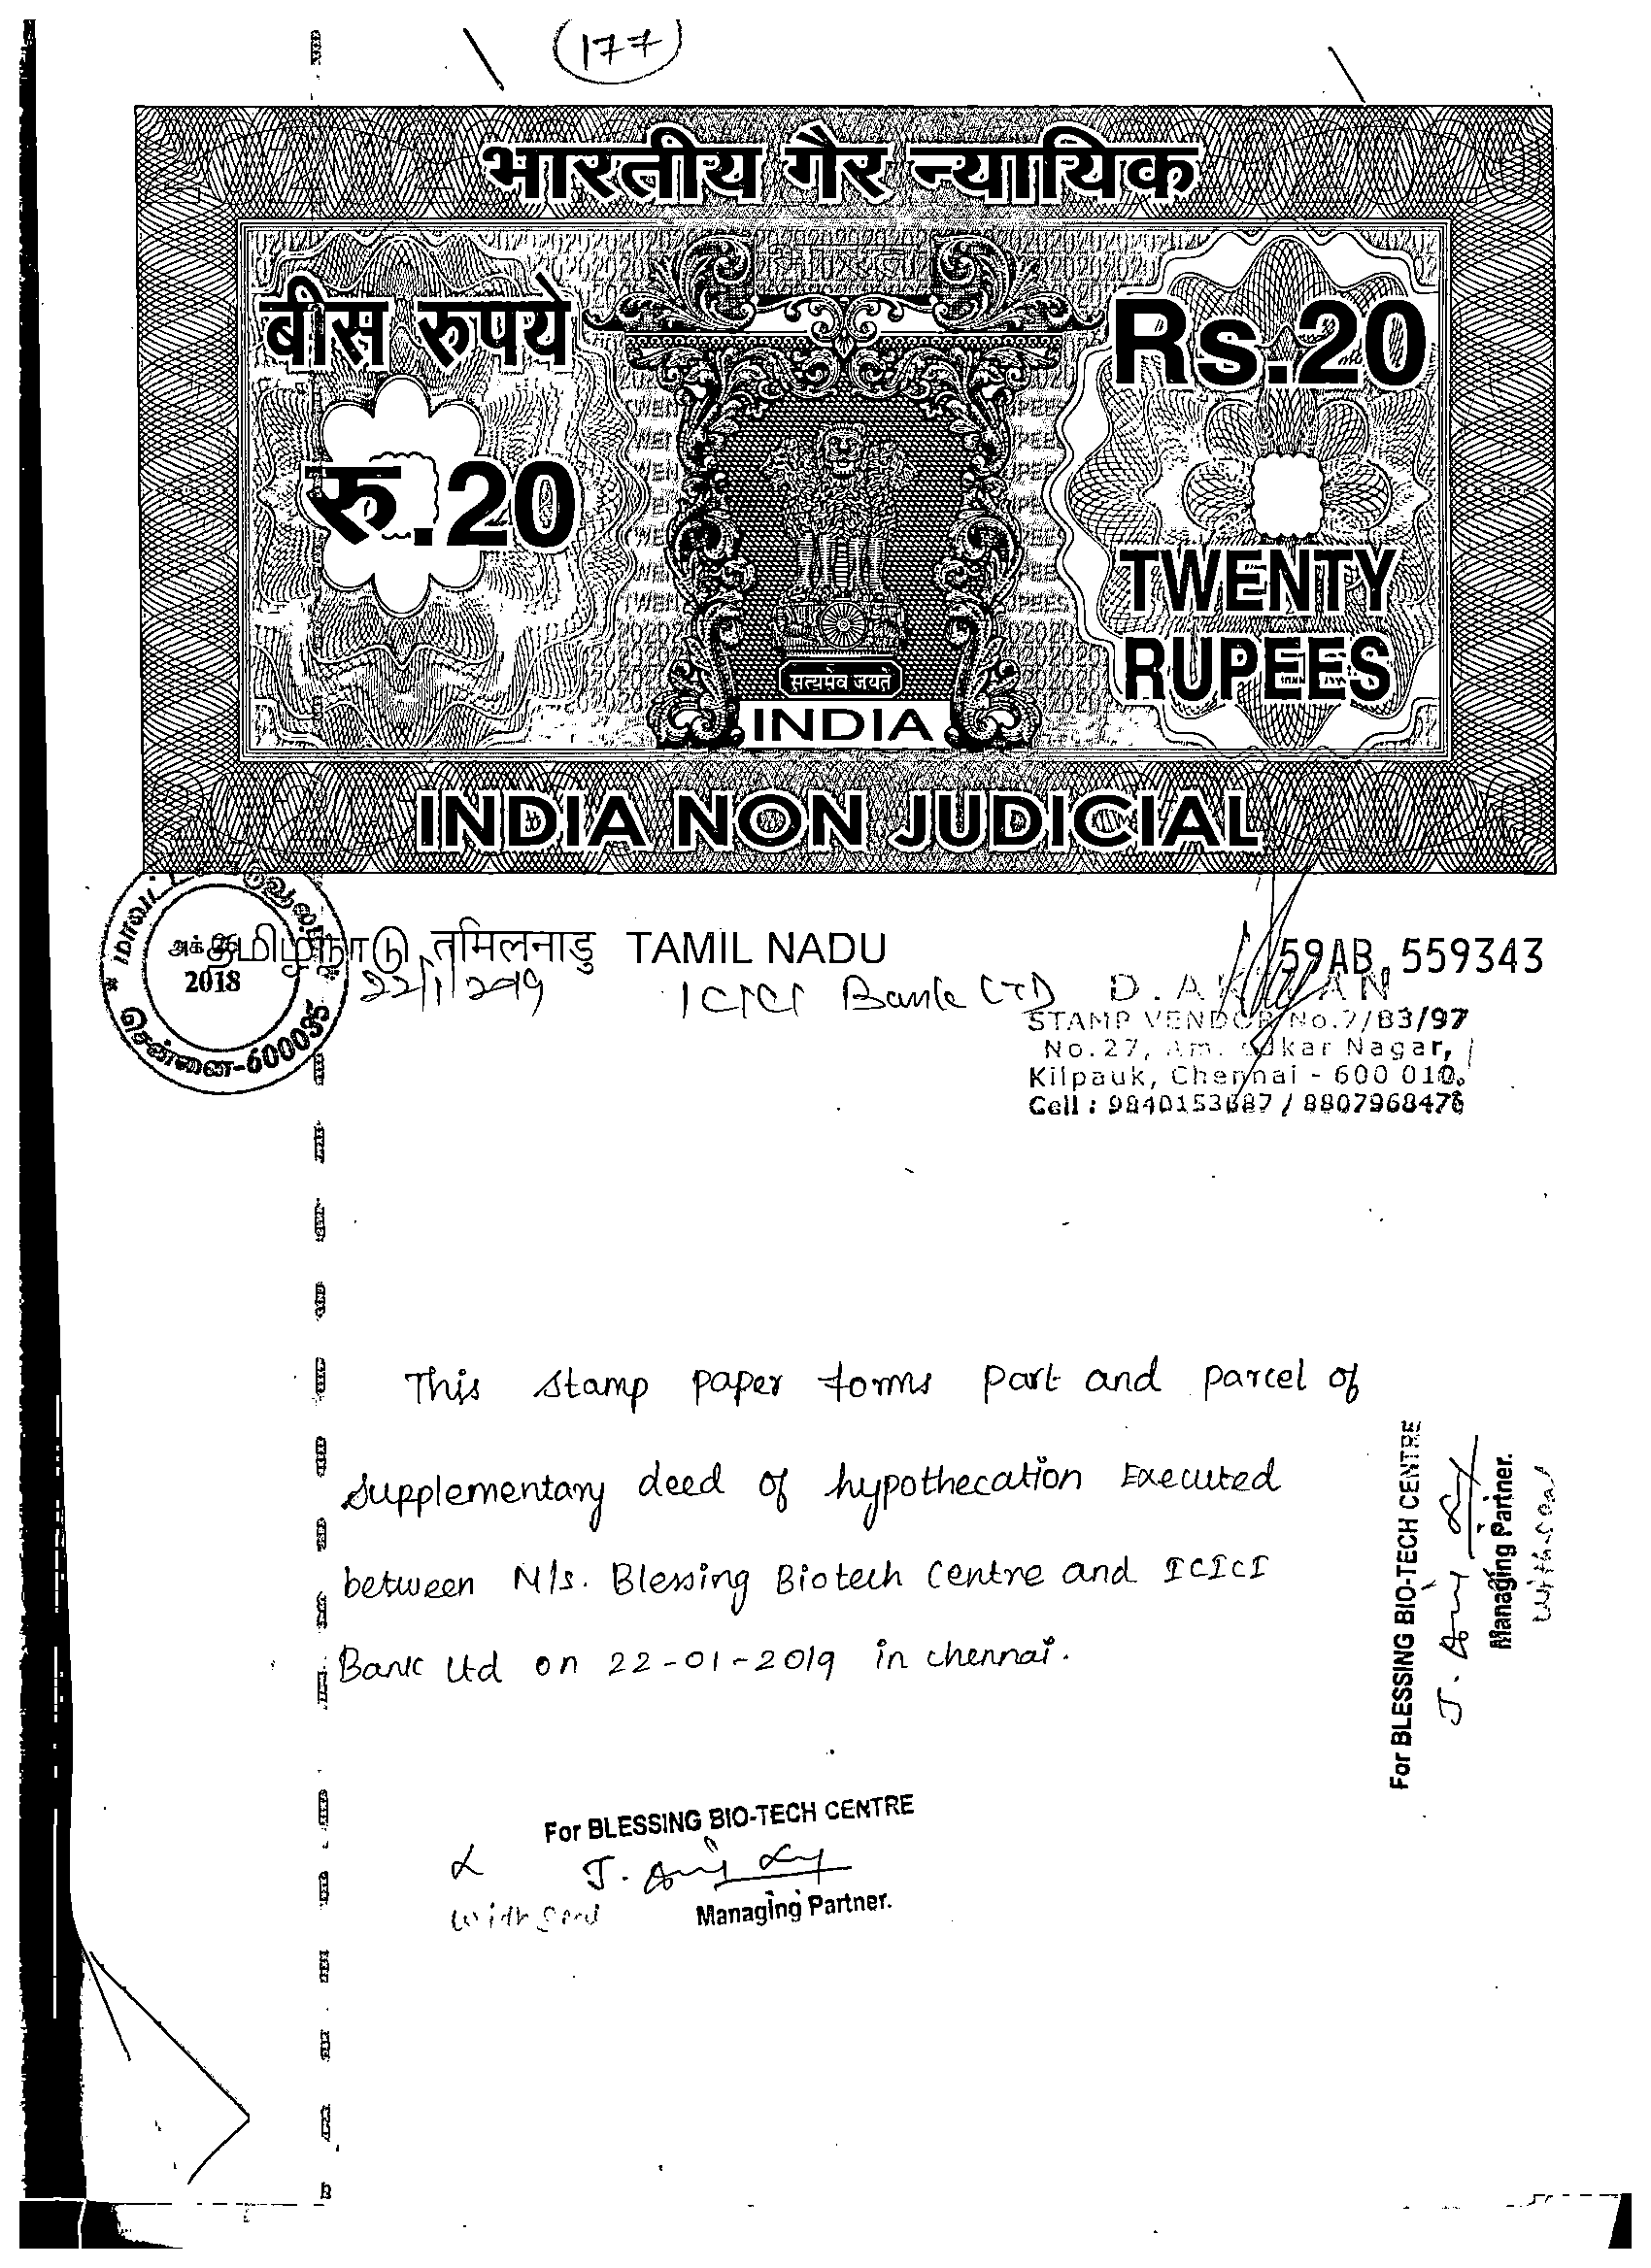 177
भारतीय गैर न्यायिक
बीस रुपये
Rs.20
रु.20
TWENTY
RUPEES
सत्यमेव जयते
INDIA
INDIA NON JUDICIAL
அக்
2018
சென்னை-600035
தமிழ்நாடு तमिलनाडु TAMIL NADU
59AB 559343
22/1/2019
ICICI Bank LTD
STAMP VENDOR No.7/B3/97
Kilpauk, Chennai - 600 010.
This stamp paper forms part and parcel of
Supplementary deed of hypothecation Executed
between M/s. Blessing Biotech Centre and ICICI
Bank Ltd on 22-01-2019 in chennai.
For BLESSING BIO-TECH CENTRE
Managing Partner.
With seal
For BLESSING BIO-TECH CENTRE
Managing Partner.
With seal